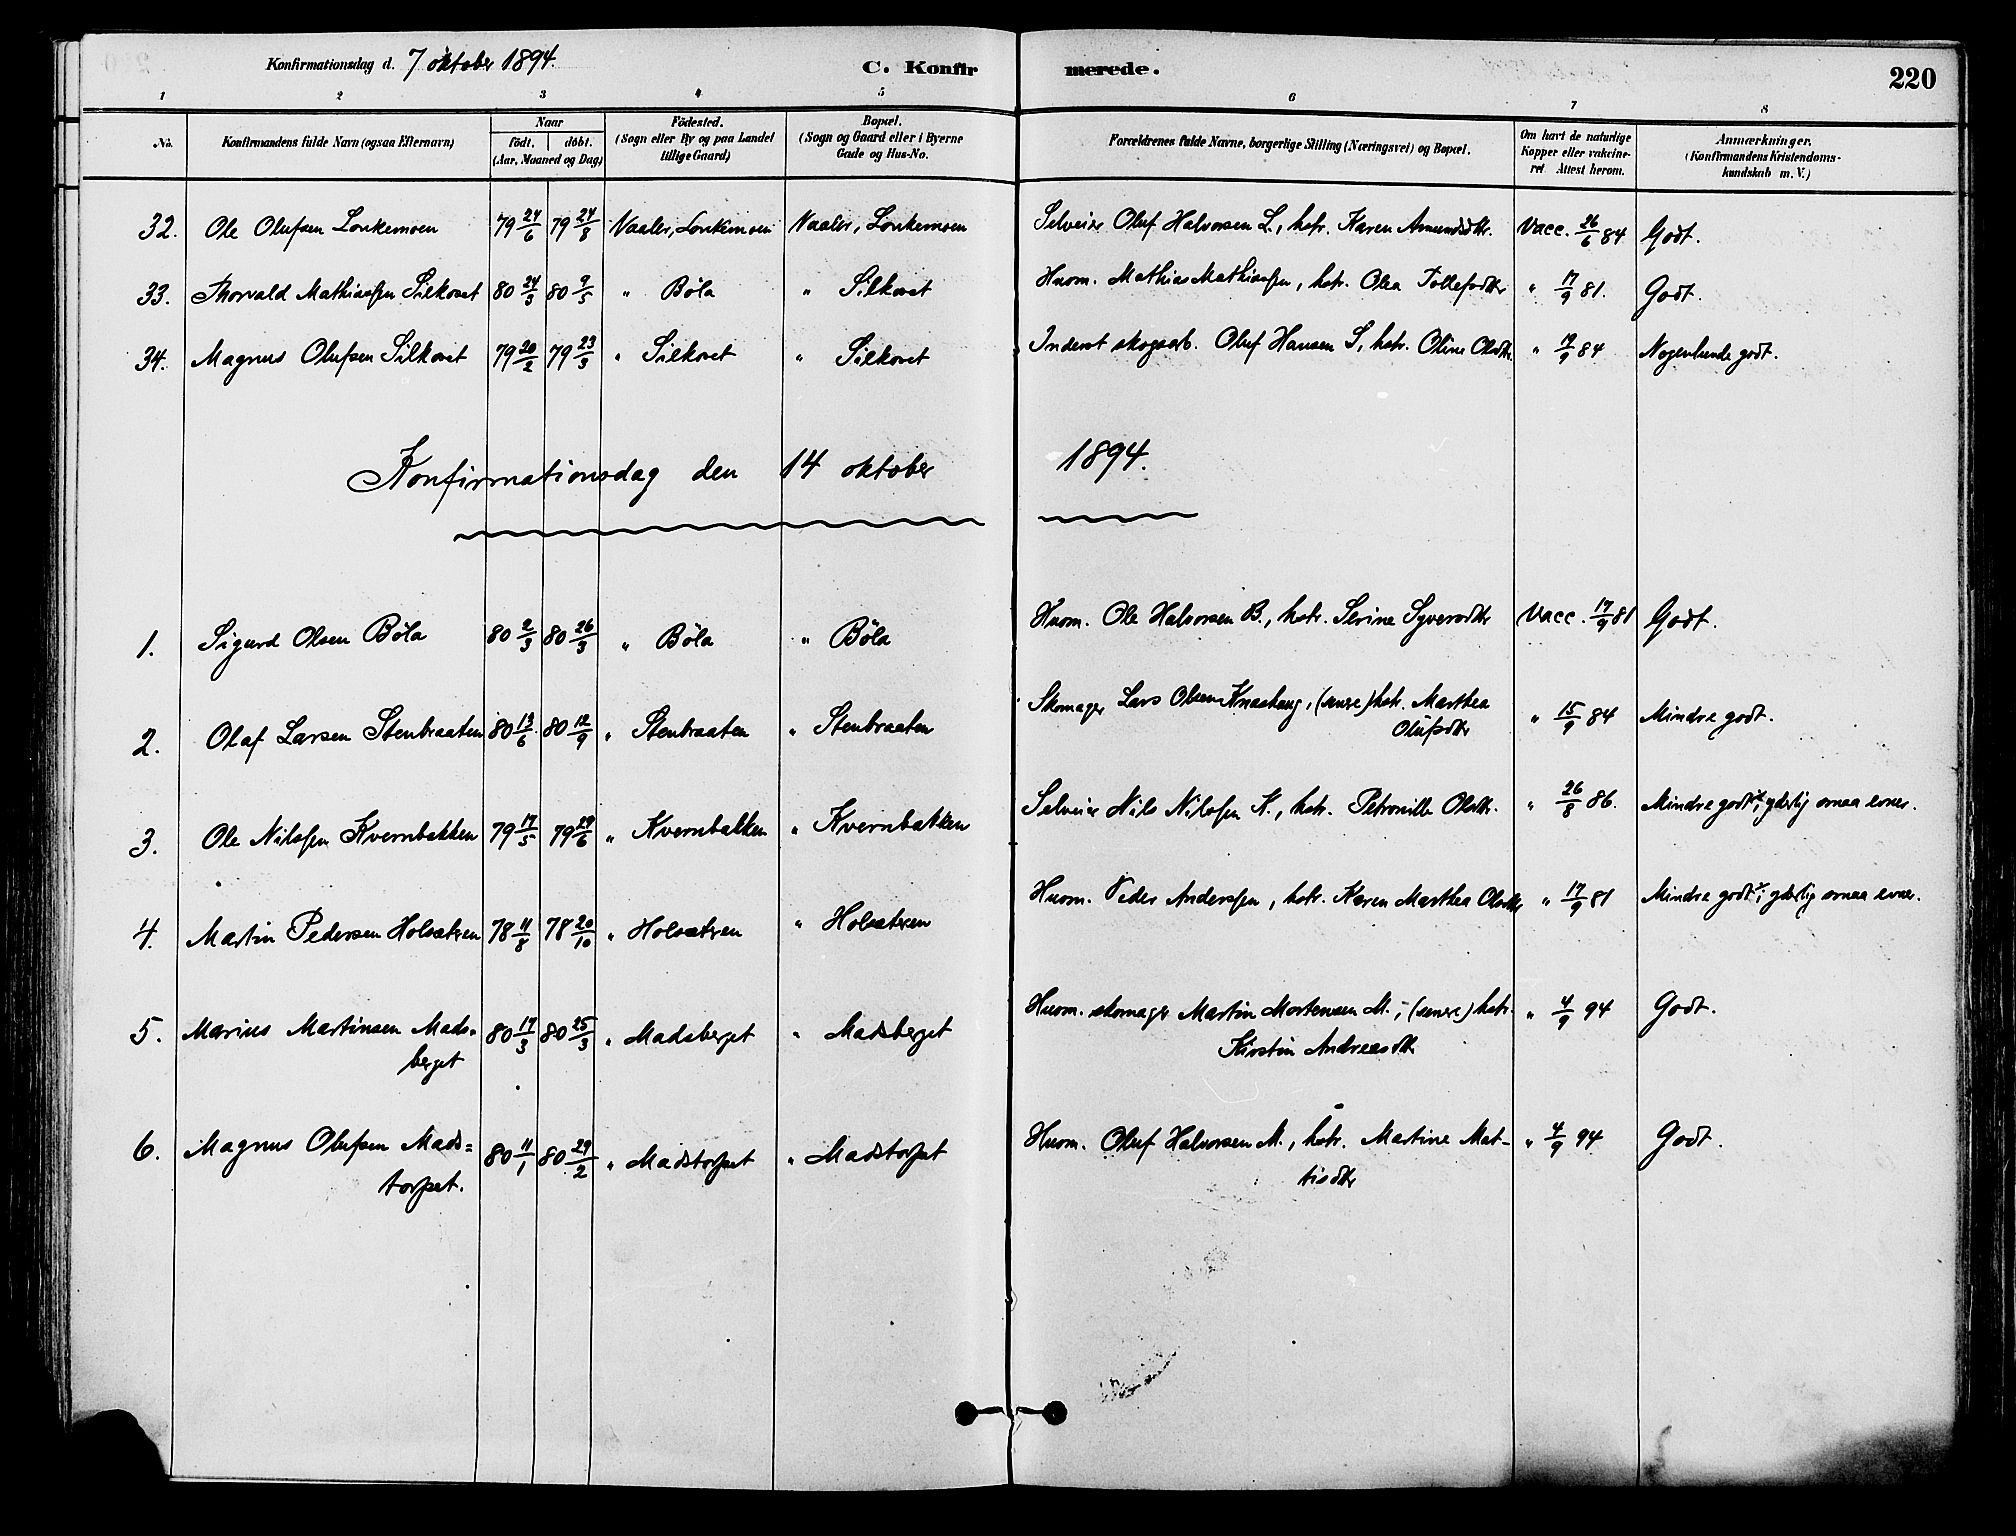 Konfirmationsdag d. 7 oktober 1894. C. Konfir merede. 220
1 2 3 4 5 6 7 8
No. Konfirmandens fulde Navn (ogsaa Efternavn) Naar födt. döbt. (Aar, Maaned og Dag) Födested. (Sogn eller By og paa Landet tillige Gaard) Bopæl. (Sogn og Gaard eller i Byerne Gade og Hus-No. Forældrenes fulde Navne, borgerlige Stilling (Næringsvei) og Bopæl. Om havt de naturlige Kopper eller vakcineret Attest herom. Anmærkninger. (Konfirmandens Kristendomskundskab m. V.)
32. Ole Olufsen Lonkemoen 79 24/6 79 24/8 Vaaler, Lonkemoen Vaaler, Lonkemoen Selveier Oluf Halvorsen L., hstr. Karen Amundsdtr. Vacc. 26/6 84 Godt.
33. Thorvald Mathiassen Silkoset 80 24/3 80 9/5 " Böla " Silkoset Husm. Mathias Mathiassen, hstr. Olea Tollefsdtr " 17/9 81. Godt.
34. Magnus Olufsen Silkoset 79 20/2 79 23/3 " Silkoset " Silkoset Inderst skogsarb. Oluf Hansen S, hstr. Oline Olsdtr. " 17/9 84 Nogenlunde godt.
Konfirmationsdag den 14 oktober 1894.
1. Sigurd Olsen Böla 80 2/3 80 26/3 " Böla " Böla Husm. Ole Halvorsen B., hstr. Serine Syversdtr Vacc. 17/9 81 Godt.
2. Olaf Larsen Stenbraaten 80 13/6 80 12/9 " Stenbraaten " Stenbraaten Skomager Lars Olsen Knashaug, (senere) hstr. Marthea " 15/9 84 Mindre godt.
Olufsdtr
3. Ole Nilssen Kvernbakken 79 17/5 79 29/6 " Kvernbakken " Kvernbakken Selveier Nils Nilssen K., hstr. Petronille Olsdtr. " 26/8 86. Mindre godt; gælig smaa evner.
4. Martin Pedersen Holsætren 78 11/8 78 20/10 " Holsætren " Holsætren Husm. Peder Anderssen, hstr. Karen Marthea Olsdtr " 17/9 81 Mindre godt; gælig smaa evner.
5. Marius Martinsen Mads= 80 17/3 80 25/3 " Madsberget " Madsberget Husm. skomager Martin Mortensen M., (senere) hstr. " 4/9 94 Godt.
berget Kirstin Andreasdtr
6. Magnus Olufsen Mads= 80 11/1 80 29/2 " Madstorpet " Madstorpet Husm. Oluf Halvorsen M., hstr. Martine Mat- " 4/9 94 Godt.
torpet. tisdtr